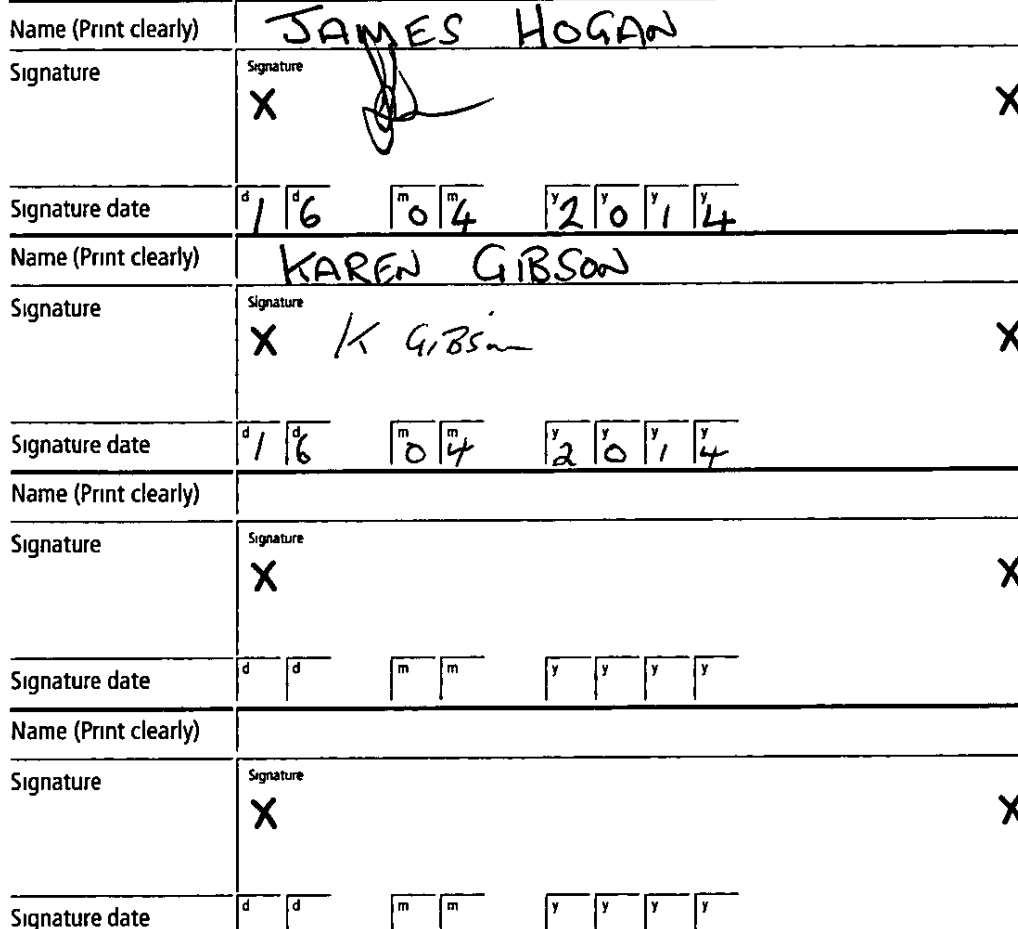 Name (Print clearly) JAMES HOGAN
Signature Signature
X X
Signature date d 1 d 6 m 0 m 4 y 2 y 0 y 1 y 4
Name (Print clearly) KAREN GIBSON
Signature Signature
X K GIBSon X
Signature date d 1 d 6 m 0 m 4 y 2 y 0 y 1 y 4
Name (Print clearly)
Signature Signature
X X
Signature date d d m m y y y y
Name (Print clearly)
Signature Signature
X X
Signature date d d m m y y y y